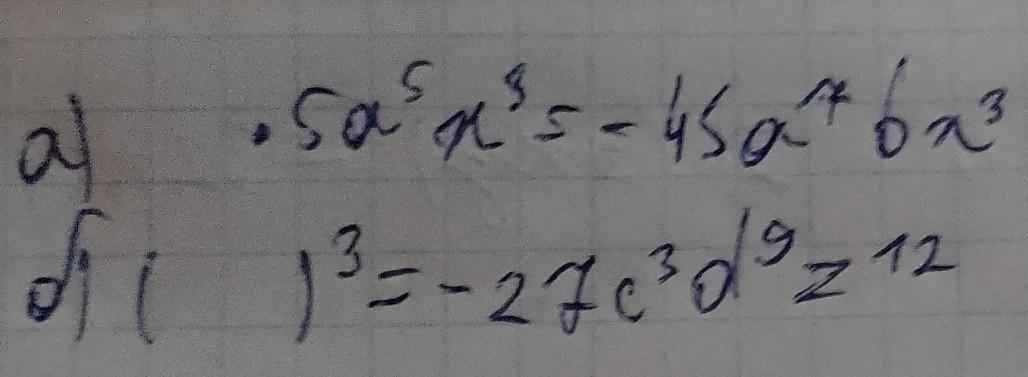 а) ·5a⁵x³=-45a⁷bx³
б) ( )³=-27c³d⁹z¹²